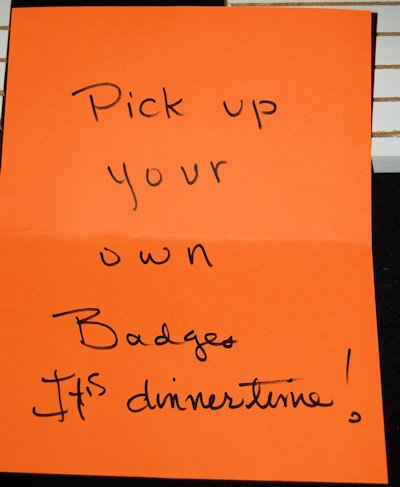 Pick up
your
own
Badges
It's dinnertime!